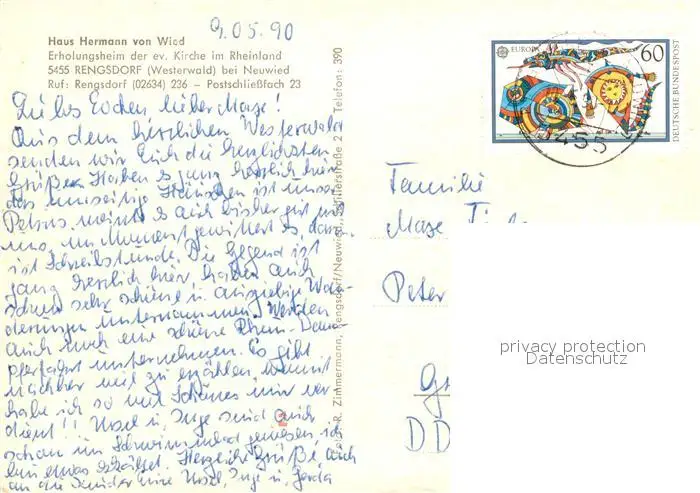 9.05.90
Haus Hermann von Wied
Erholungsheim der ev. Kirche im Rheinland
5455 RENGSDORF (Westerwald) bei Neuwied
Ruf: Rengsdorf (02634) 236 – Postschließfach 23
Aus dem herrlichen Westerwald
senden wir Euch die herzlichsten
Grüße. Haben es ganz herrlich hier
das Häuschen ist unser
Petrus meint es auch bisher gut mit
uns, im Moment gewittert es, darum
ist Schreibstunde. Die Gegend ist
ganz herrlich hier, haben auch
schon sehr schöne u. ausgiebige Wan-
derungen unternommen. Werden
auch noch eine schöne Rhein-Dam
pferfahrt unternehmen. Es gibt
nachher viel zu erzählen womit
habe ich so viel Schönes nur ver-
dient!! Ursel u. Inge sind auch
schon im Schwimmbad gewesen, ich
bin etwas erkältet. Herzliche Grüße, auch
an die Kinder Ursel, Inge u. Gerda
R. Zimmermann, Rengsdorf/Neuwied, 2 Telefon: 390
EUROPA
60
DEUTSCHE BUNDESPOST
5455
Familie
Peter
DD
privacy protection
Datenschutz